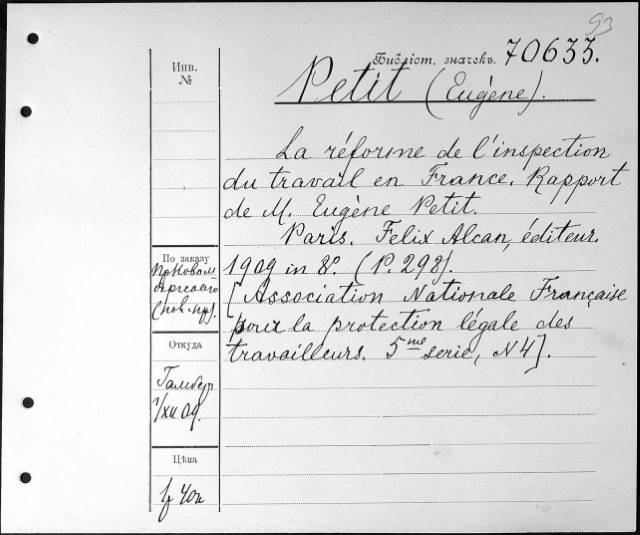 93
Библіот. значекъ. 70633.
Инв.
№
Petit (Eugène).
La réforme de l'inspection
du travail en France. Rapport
de M. Eugène Petit.
Paris. Felix Alcan, éditeur.
1909 in 8º. (P. 298).
[Association Nationale Française
pour la protection légale des
travailleurs. 5me serie, N4].
По заказу
Откуда
1/XII 09.
Цѣна
1f 40